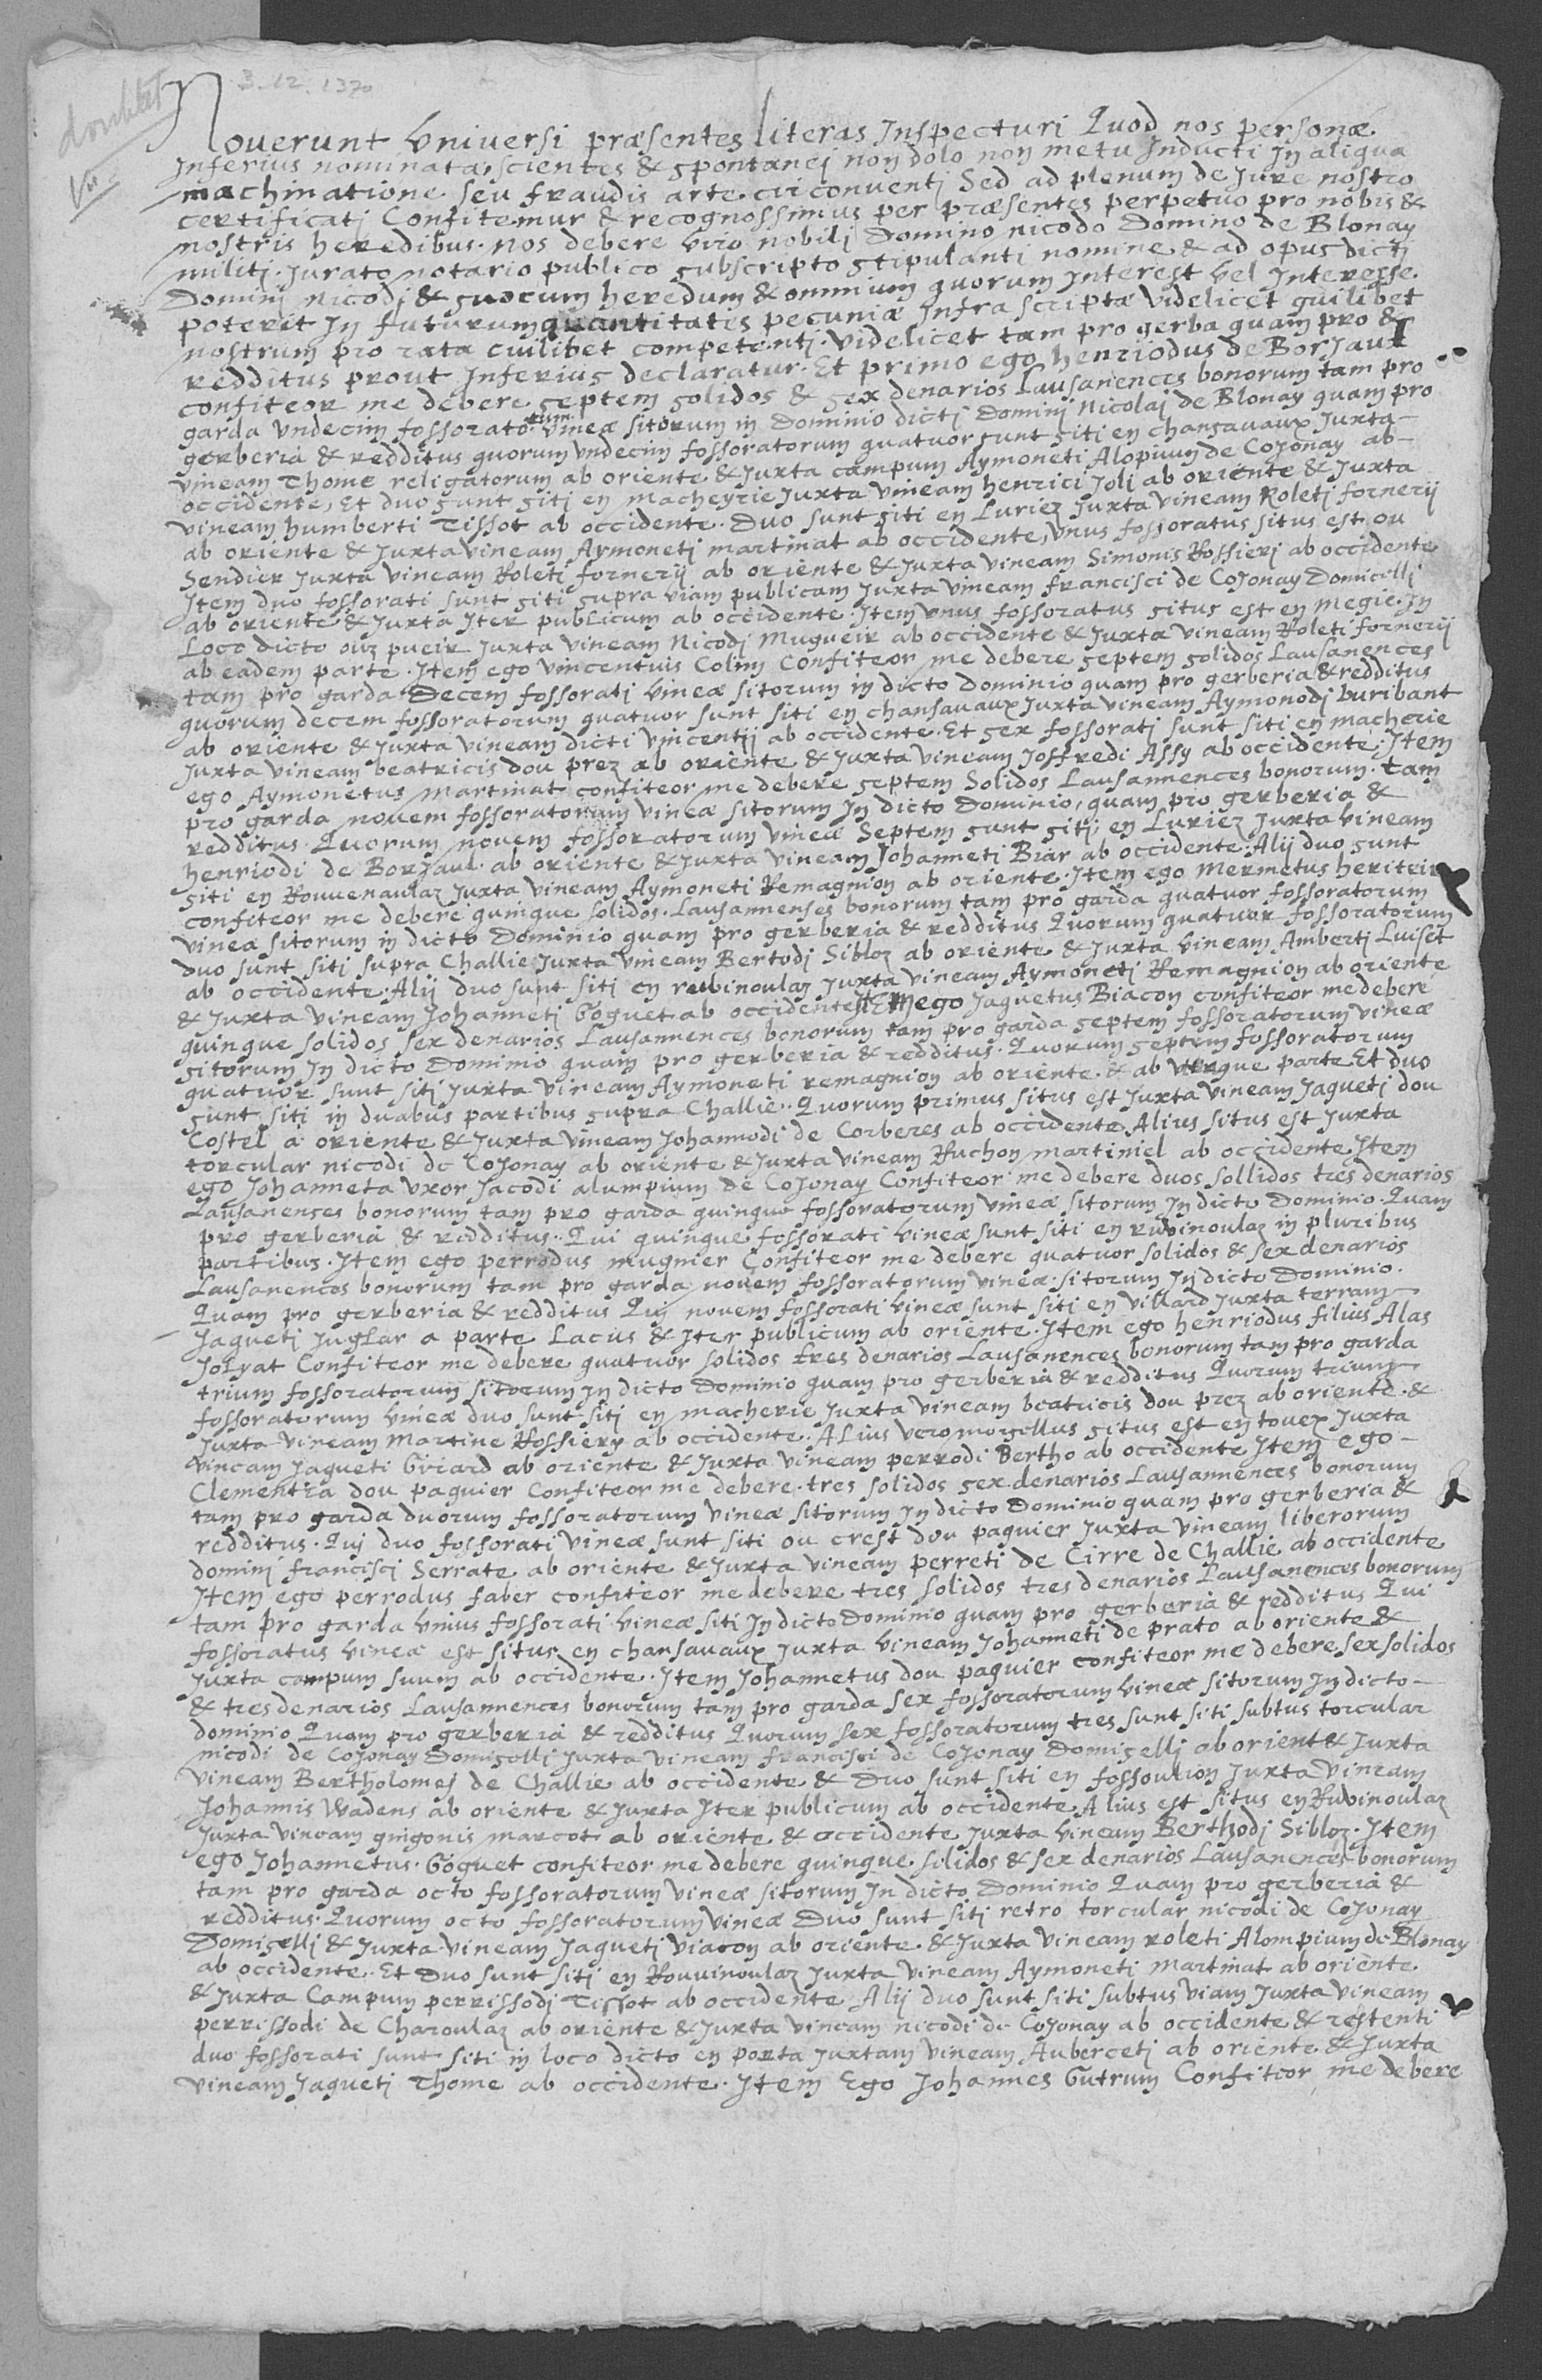 3.12.1370
doublet
Vu
Noverunt Universi præsentes literas Inspecturi Quod nos personæ
Inferius nominatæ, scientes & spontanej non dolo non metu Inducti In aliqua
machinatione seu fraudis arte circonventj Sed ad plenum de Jure nostro
certificatj Confitemur & recognossimus per præsentes perpetuo pro nobis &
nostris heredibus. nos debere viro nobilj Domino nicodo Domino de Blonay
militj. Jurato notario publico subscripto stipulanti nomine & ad opus dictj
Dominj Nicodj & suorum heredum & omnium quorum Interest vel Interesse
poterit In futurum quantitates pecuniæ Infra scriptæ videlicet quilibet
nostrum pro rata cuilibet competentj. videlicet tam pro gerba quam pro &
redditus prout Inferius declaratur. Et primo ego henriodus de Borjaul
confiteor me debere septem solidos & sex denarios Lausanences bonorum tam pro
garda undecim fossorato rum vineæ sitorum in Dominio dictj Dominj Nicolaj de Blonay quam pro
gerberia & redditus quorum undecim fossoratorum quatuor sunt siti en chansavaux Juxta
vineam Thome religatorum ab oriente & Juxta campum Aymoneti Alopiuum de Cojonay ab
occidente, Et duo sunt sitj en macheyrie Juxta vineam henrici Jolj ab oriente & Juxta
vineam humberti Tissot ab occidente. Duo sunt siti en Luriez Juxta vineam Roletj fornerij
ab oriente & Juxta vineam Aymonetj martinat ab occidente, Unus fossoratus situs est ou
Sendier Juxta vineam Roleti fornerij ab oriente & Juxta vineam Simonis Rossierj ab occidente
Item duo fossorati sunt siti supra viam publicam Juxta vineam francisci de Cojonay Domicellj
ab oriente & Juxta Iter publicum ab occidente. Item unus fossoratus situs est en Megie. In
Loco dicto ouz pueir Juxta vineam Nicodj Mugueir ab occidente & Juxta vineam Roleti fornerij
ab eadem parte. Item ego vincentius Colim Confiteor me debere septem solidos Lausanences
tam pro garda Decem fossoratj vineæ sitorum in dicto Dominio quam pro gerberia & redditus
quorum decem fossoratorum quatuor sunt siti en chansavaux Juxta vineam Aymonodj buribant
ab oriente & Juxta vineam dicti vincentij ab occidente. Et sex fossoratj sunt siti en macherie
Juxta vineam beatricis dou prez ab oriente & Juxta vineam Joffredi Assy ab occidente. Item
ego Aymonetus Martinat confiteor me debere septem Solidos Lausannences bonorum. tam
pro garda novem fossoratorum vineæ sitorum In dicto Dominio, quam pro gerberia &
redditus. Quorum novem fossoratorum vineæ Septem sunt sitj en Luriez Juxta vineam
henriodi de Borjaul. ab oriente & Juxta vineam Johanneti Biar ab occidente. Alij duo sunt
siti en Rouvenaulaz Juxta vineam Aymoneti Remagnion ab oriente. Item ego Mermetus heriteir
confiteor me debere quinque solidos. Lausannenses bonorum tam pro garda quatuor fossoratorum
vineæ sitorum in dicto Dominio quam pro gerberia & redditus Quorum quatuor fossoratorum
duo sunt siti supra Challie Juxta vineam Bertodj Sibloz ab oriente & Juxta vineam Ambertj Luiset
ab occidente. Alij duo sunt siti en rubinoulaz Juxta vineam Aymonetj Remagnion ab oriente
& Juxta vineam Johannetj Goguet ab occidente. Item ego Jaquetus Biacon confiteor me debere
quinque solidos sex denarios Lausannences bonorum tam pro garda septem fossoratorum vineæ
sitorum In dicto Dominio quam pro gerberia & redditus. Quorum septem fossoratorum
quatuor sunt sitj Juxta vineam Aymoneti remagnion ab oriente & ab utraque parte Et duo
sunt siti in duabus partibus supra Challie. Quorum primus situs est Juxta vineam Jaquetj dou
Costel a oriente & Juxta vineam Johannodi de Corberes ab occidente Alius situs est Juxta
torcular nicodi de Cojonay ab oriente & Juxta vineam Ruchon martiniel ab occidente Item
ego Johanneta uxor Jacodi alumpium de Cojonay Confiteor me debere duos sollidos tres denarios
Lausanences bonorum tam pro garda quinque fossoratorum vineæ sitorum In dicto Dominio. Quam
pro gerberia & redditus. Qui quinque fossorati vineæ sunt siti en ruvinoulaz in pluribus
partibus. Item ego perrodus mugnier Confiteor me debere quatuor solidos & sex denarios
Lausanences bonorum tam pro garda novem fossoratorum vineæ sitorum In dicto Dominio.
Quam pro gerberia & redditus Quj novem fossorati vineæ sunt siti en villard Juxta terram
Jaquetj Juglar a parte Lacus & Iter publicum ab oriente. Item ego henriodus filius Alas
Jolyat Confiteor me debere quatuor solidos tres denarios Lausanences bonorum tam pro garda
trium fossoratorum sitorum In dicto Dominio quam pro gerberia & redditus Quorum trium
fossoratorum vineæ duo sunt sitj en macherie Juxta vineam beatricis dou prez ab oriente &
Juxta vineam Martine Rossiery ab occidente. Alius vero morsellus situs est en touex Juxta
vineam Jaqueti Griard ab oriente & Juxta vineam perrodi Bertho ab occidente Item ego
Clementza dou paquier Confiteor me debere tres solidos sex denarios Lausannences bonorum
tam pro garda duorum fossoratorum vineæ sitorum In dicto Dominio quam pro gerberia &
redditus. Quj duo fossorati vineæ sunt siti ou crest dou paquier Juxta vineam liberorum
dominj francisci Serrate ab oriente & Juxta vineam perreti de Cirre de Challie ab occidente
Item ego perrodus faber confiteor me debere tres solidos tres denarios Lausanences bonorum
tam pro garda unius fossorati vineæ siti In dicto Dominio quam pro gerberia & redditus Qui
fossoratus vineæ est situs en chansavaux Juxta vineam Johanneti de prato ab oriente &
Juxta campum suum ab occidente. Item Johannetus dou paquier confiteor me debere sex solidos
& tres denarios Lausannences bonorum tam pro garda sex fossoratorum vineæ sitorum In dicto
dominio Quam pro gerberia & redditus Quorum sex fossoratorum tres sunt siti subtus torcular
nicodi de Cojonay Domisellj Juxta vineam francisci de Cojonay Domisellj ab orient & Juxta
vineam Bertholomej de Challie ab occidente & Duo sunt siti en fossoulion Juxta vineam
Johannis Wadens ab oriente & Juxta Iter publicum ab occidente Alius est situs en Ruvinoulaz
Juxta vineam guigonis marcot ab oriente & occidente Juxta vineam Berthodj Sibloz. Item
ego Johannetus. Goguet confiteor me debere quinque solidos & sex denarios Lausanences bonorum
tam pro garda octo fossoratorum vineæ sitorum In dicto Dominio Quam pro gerberia &
redditus. Quorum octo fossoratorum vineæ Duo sunt sitj retro torcular nicodi de Cojonay
Domisellj & Juxta vineam Jaquetj viacon ab oriente & Juxta vineam roleti Alompium de Blonay
ab occidente. Et Duo sunt sitj en Rouvinoulaz Juxta vineam Aymoneti martinat ab oriente
& Juxta Campum perrissodj Tissot ab occidente Alij duo sunt siti subtus viam Juxta vineam
perrissodi de Charoulaz ab oriente & Juxta vineam nicodi de Cojonay ab occidente & restenti
duo fossorati sunt siti in loco dicto en porta Juxtam vineam Aubercetj ab oriente & Juxta
vineam Jaquetj Thome ab occidente. Item Ego Johannes Gutrum Confiteor me debere